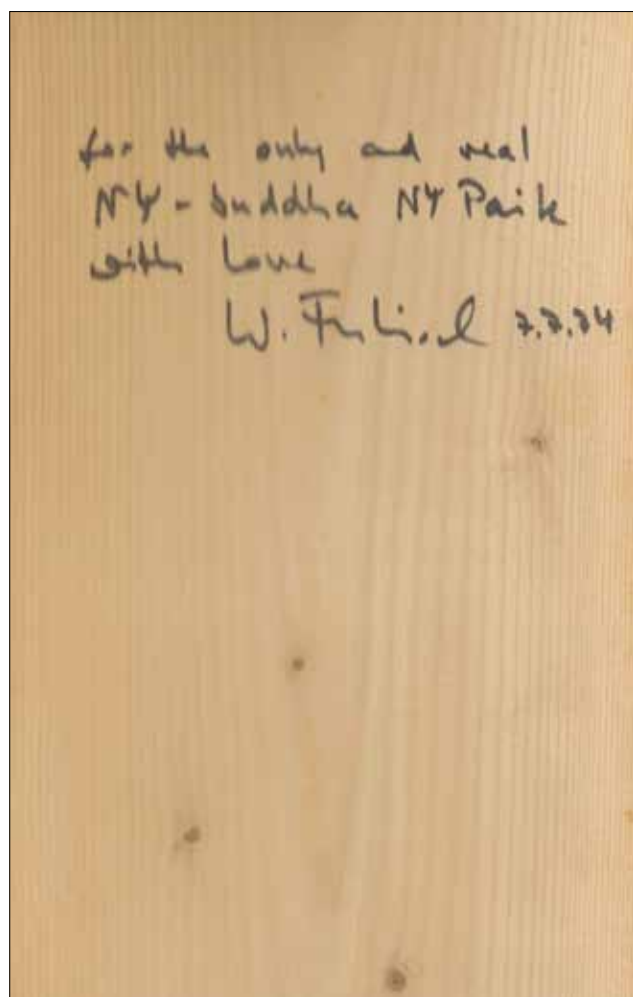 for the only and real
NY - buddha NY Paik
with love
W. 7.7.74